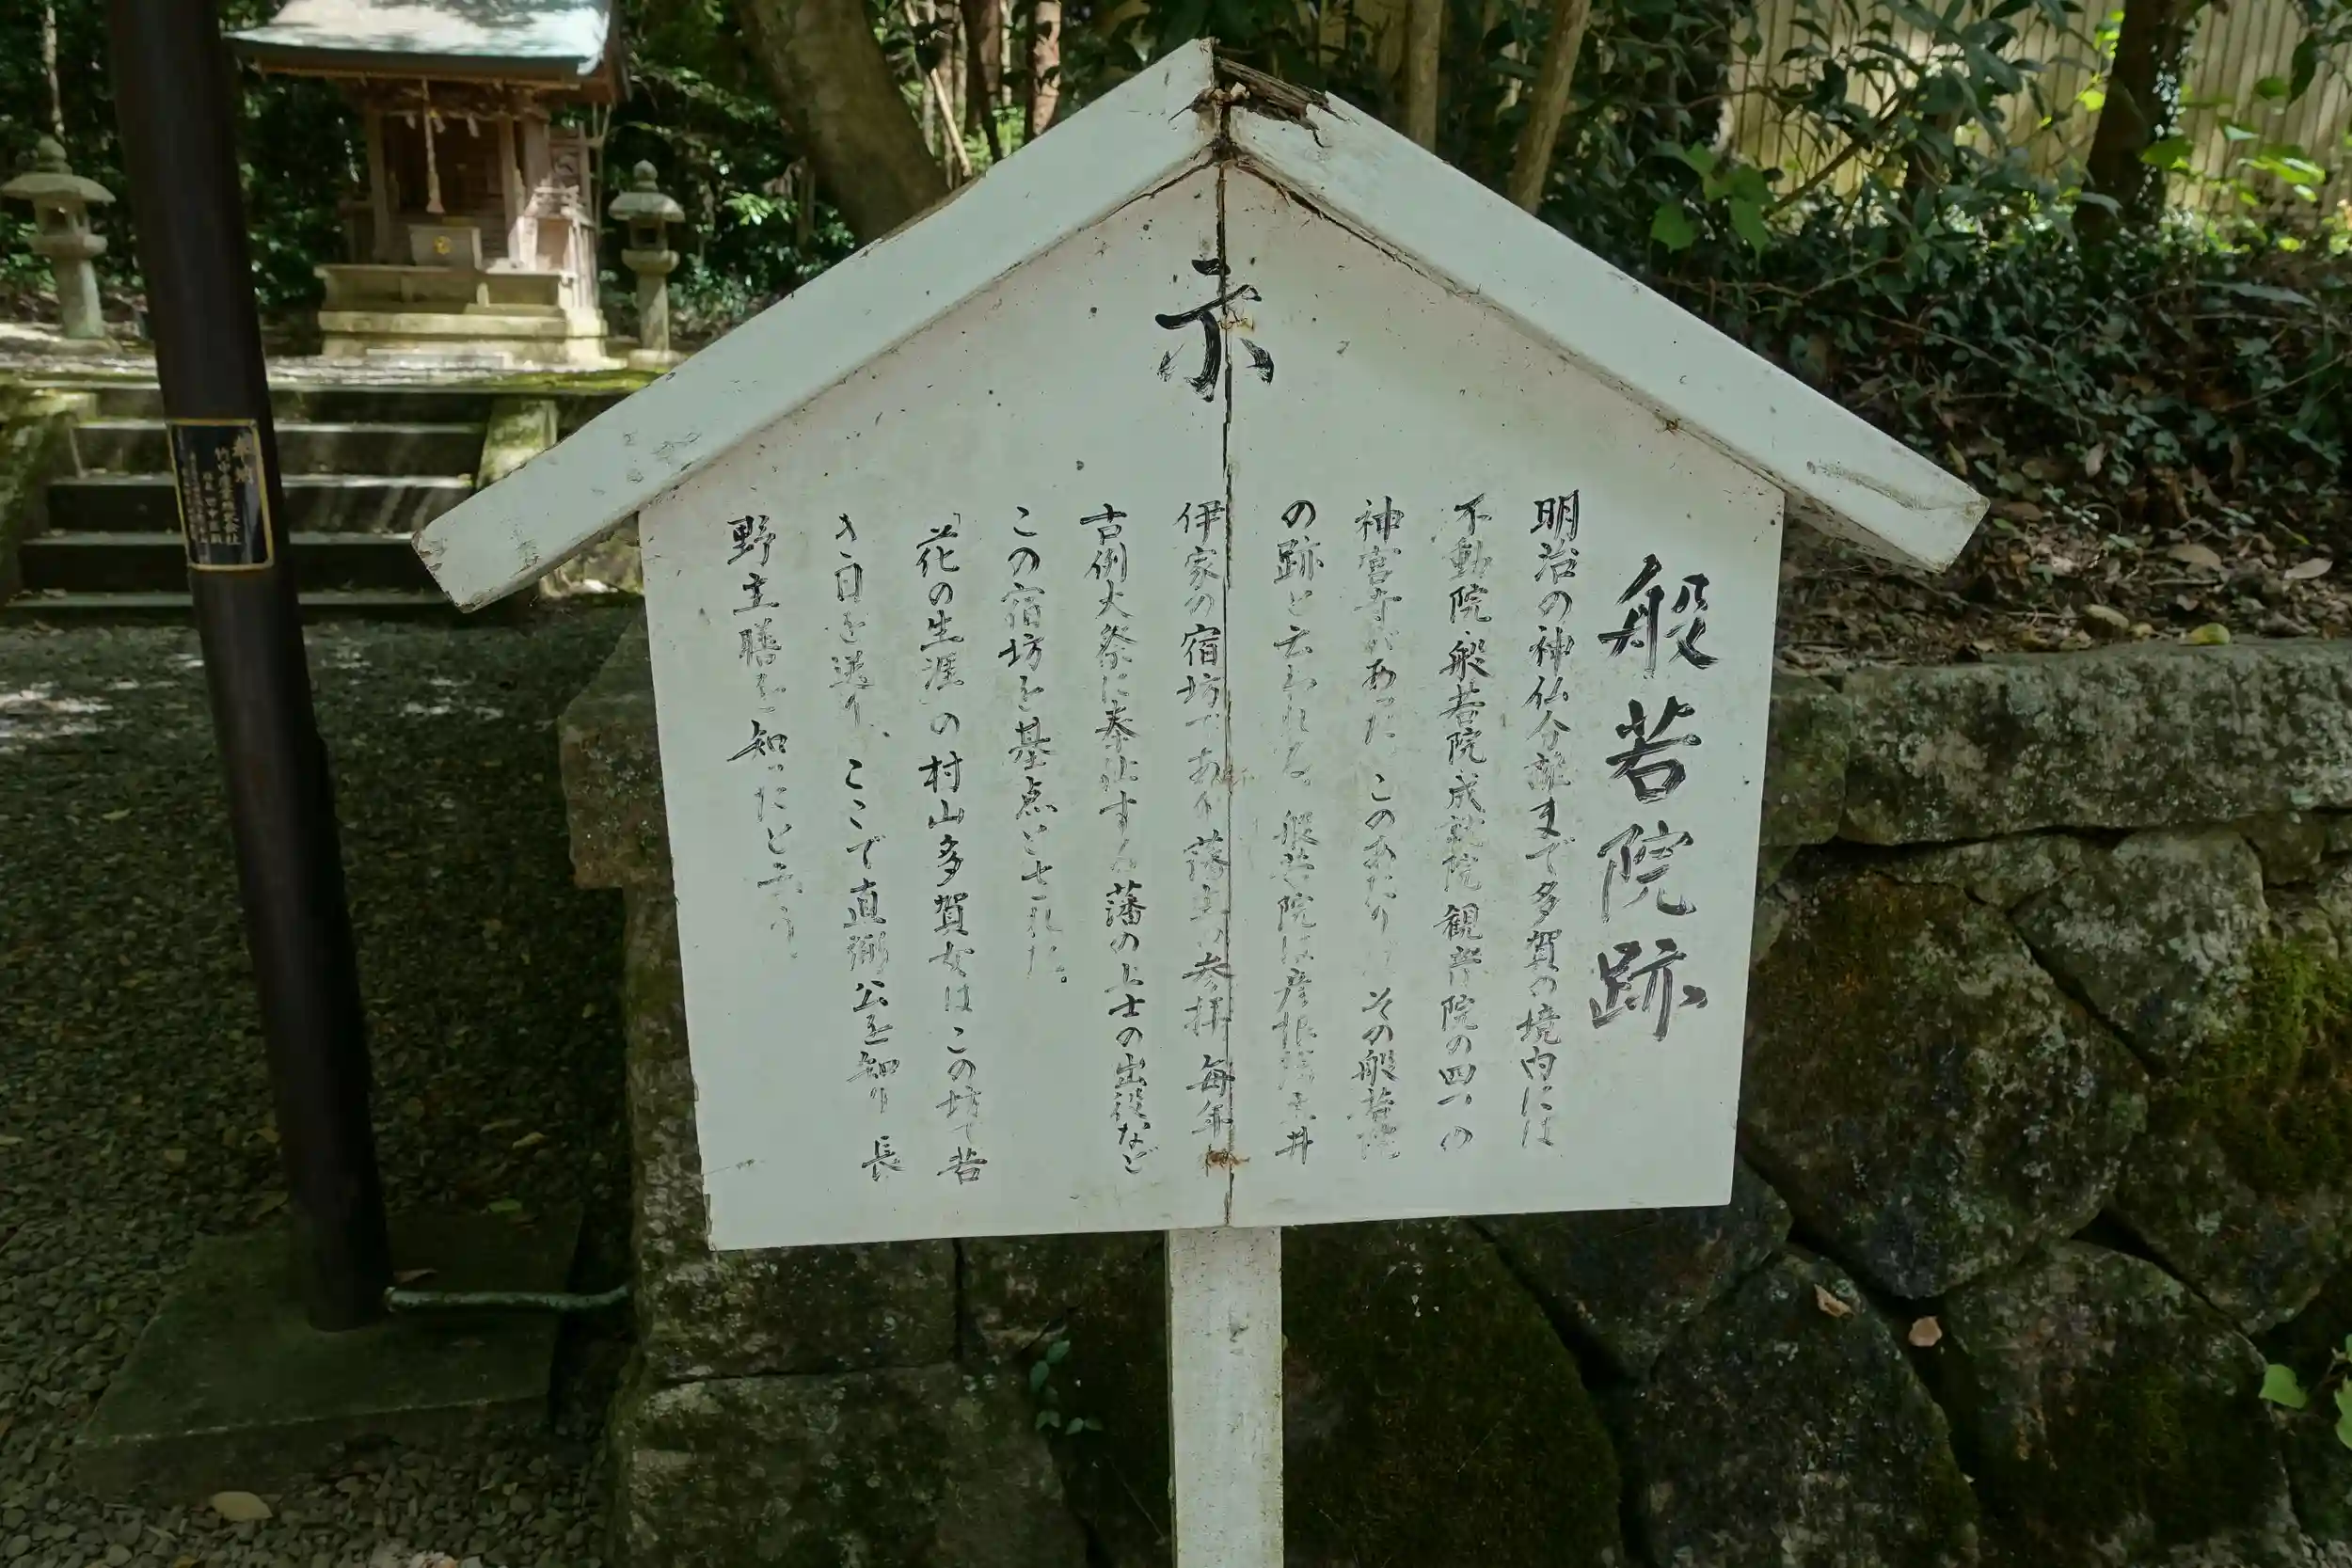 示
般若院跡
明治の神仏分離まで多賀の境内には
不動院 般若院 成就院 観音院の四つの
神宮寺があった このあたりは その般若院
の跡と云われる 般若院は彦根藩主井
伊家の宿坊であり 藩主の参拝 毎年
古例大祭に奉仕する藩の上士の出役など
この宿坊を基点とされた。
「花の生涯」の村山多賀女は この坊で若
き日を送り、ここで直弼公を知り 長
野主膳を知ったと云う。
奉納